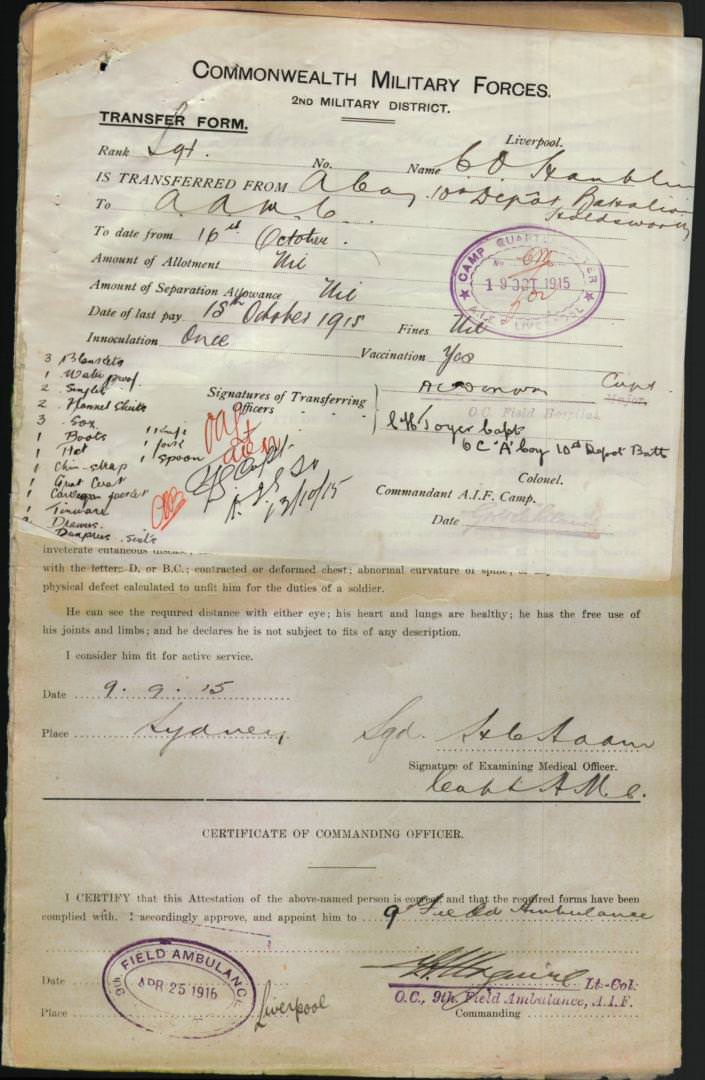 COMMONWEALTH MILITARY FORCES.
2ND MILITARY DISTRICT.
TRANSFER FORM.
Liverpool.
Rank Sgt. No. Name C O Hamblin
IS TRANSFERRED FROM A Coy 10th Depot Battalion
Holdsworthy
To A.A.M.C.
To date from 16th October.
Amount of Allotment Nil
Amount of Separation Allowance Nil
CAMP QUARTERMASTER
No
19 OCT 1915
A.I.F. LIVERPOOL
Date of last pay 15th October 1915 Fines Nil
Innoculation Once Vaccination Yes
3 Blankets
1 Waterproof
2 Singlets
2 Flannel Shirts
3 Sox
1 Boots 1 knife
1 Hat 1 fork
1 Chin-strap 1 spoon
1 Great Coat
1 Cardigan jacket
1 Tinware
Drawers
Dungarees suits
Signatures of Transferring
Officers
Capt
13/10/15
Capt
Major.
O.C. Field Hospital.
Toyer Capt
O C "A" Coy 10th Depot Battn
Colonel.
Commandant A.I.F. Camp.
Date
inveterate cutaneous disease;
with the letters D. or B.C.; contracted or deformed chest; abnormal curvature of spine;
physical defect calculated to unfit him for the duties of a soldier.
He can see the required distance with either eye; his heart and lungs are healthy; he has the free use of
his joints and limbs; and he declares he is not subject to fits of any description.
I consider him fit for active service.
Date 9. 9. 15
Place Sydney Sgd.
Signature of Examining Medical Officer.
Capt A.M.C.
CERTIFICATE OF COMMANDING OFFICER.
I CERTIFY that this Attestation of the above-named person is correct, and that the required forms have been
complied with. I accordingly approve, and appoint him to 9th Field Ambulance
9th FIELD AMBULANCE
APR 25 1916
Date Lt.-Col.
O.C., 9th Field Ambulance, A.I.F.
Place Liverpool Commanding